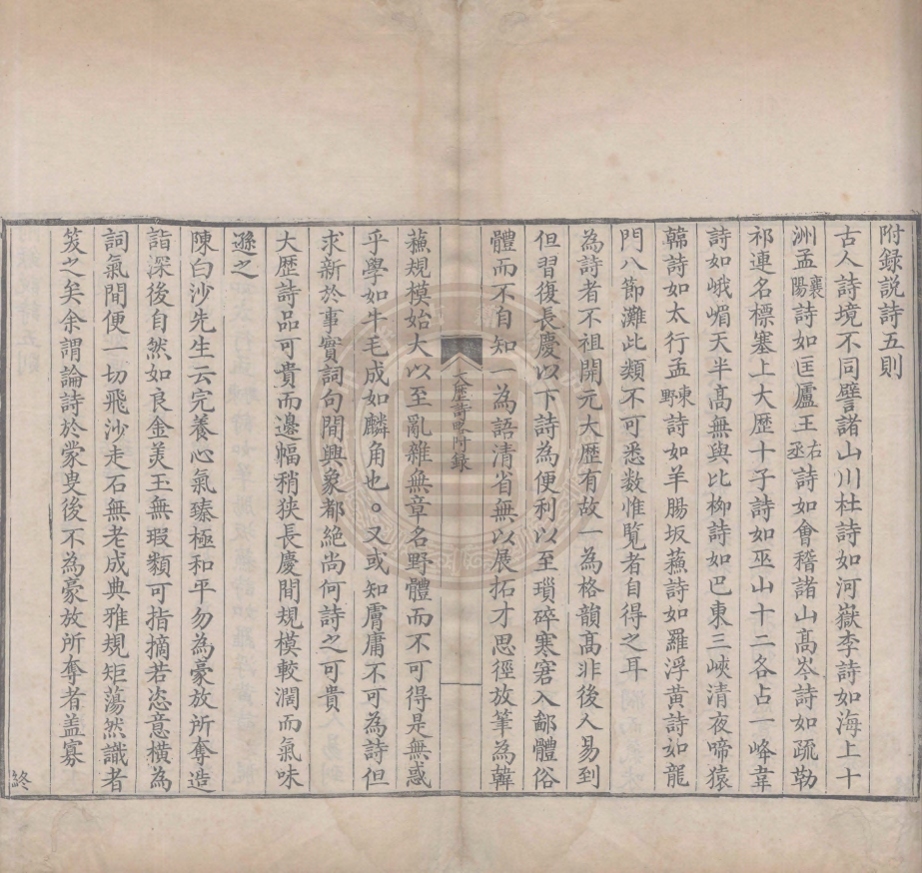 附録説詩五則
古人詩境不同譬諸山川杜詩如河嶽李詩如海上十
洲孟襄陽詩如匡廬王右丞詩如會稽諸山高岑詩如疏勒
祁連名標塞上大歴十子詩如巫山十二各占一峰韋
詩如峨嵋天半高無與比柳詩如巴東三峽清夜啼猿
韓詩如太行孟東野詩如羊腸坂蘓詩如羅浮黄詩如龍
門八節灘此類不可悉数惟覧者自得之耳
為詩者不祖開元大歴有故一為格韻高非後人易到
但習復長慶以下詩為便利以至瑣碎寒窘入鄙體俗
體而不自知一為語清省無以展拓才思徑放筆為韓
大歴詩略附録
蘓規模始大以至亂雜無章名野體而不可得是無惑
乎學如牛毛成如麟角也。又或知膚庸不可為詩但
求新於事實詞句間興象都絶尚何詩之可貴
大歴詩品可貴而邊幅稍狹長慶間規模較濶而氣味
遜之
陳白沙先生云完養心氣臻極和平勿為豪放所奪造
詣深後自然如良金美玉無瑕纇可指摘若恣意横為
詞氣間便一切飛沙走石無老成典雅規矩蕩然識者
笈之矣余謂論詩於蒙叟後不為豪放所奪者盖寡
終